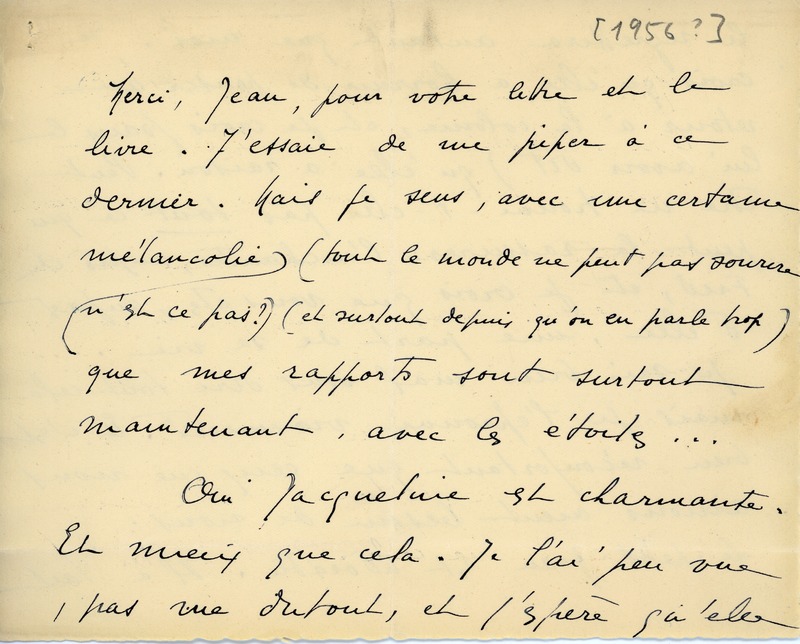 [1956?]
Merci, Jean, pour votre lettre et le
livre. J'essaie de me piper à ce
dernier. Mais je sens, avec une certaine
mélancolie) (tout le monde ne peut pas sourire
(n'est ce pas?) (et surtout depuis qu'on en parle trop)
que mes rapports sont surtout
maintenant, avec les étoiles...
Oui Jacqueline est charmante.
Et mieux que cela. Je l'ai peu vue
, pas vue dutout, et j'espère qu'elle